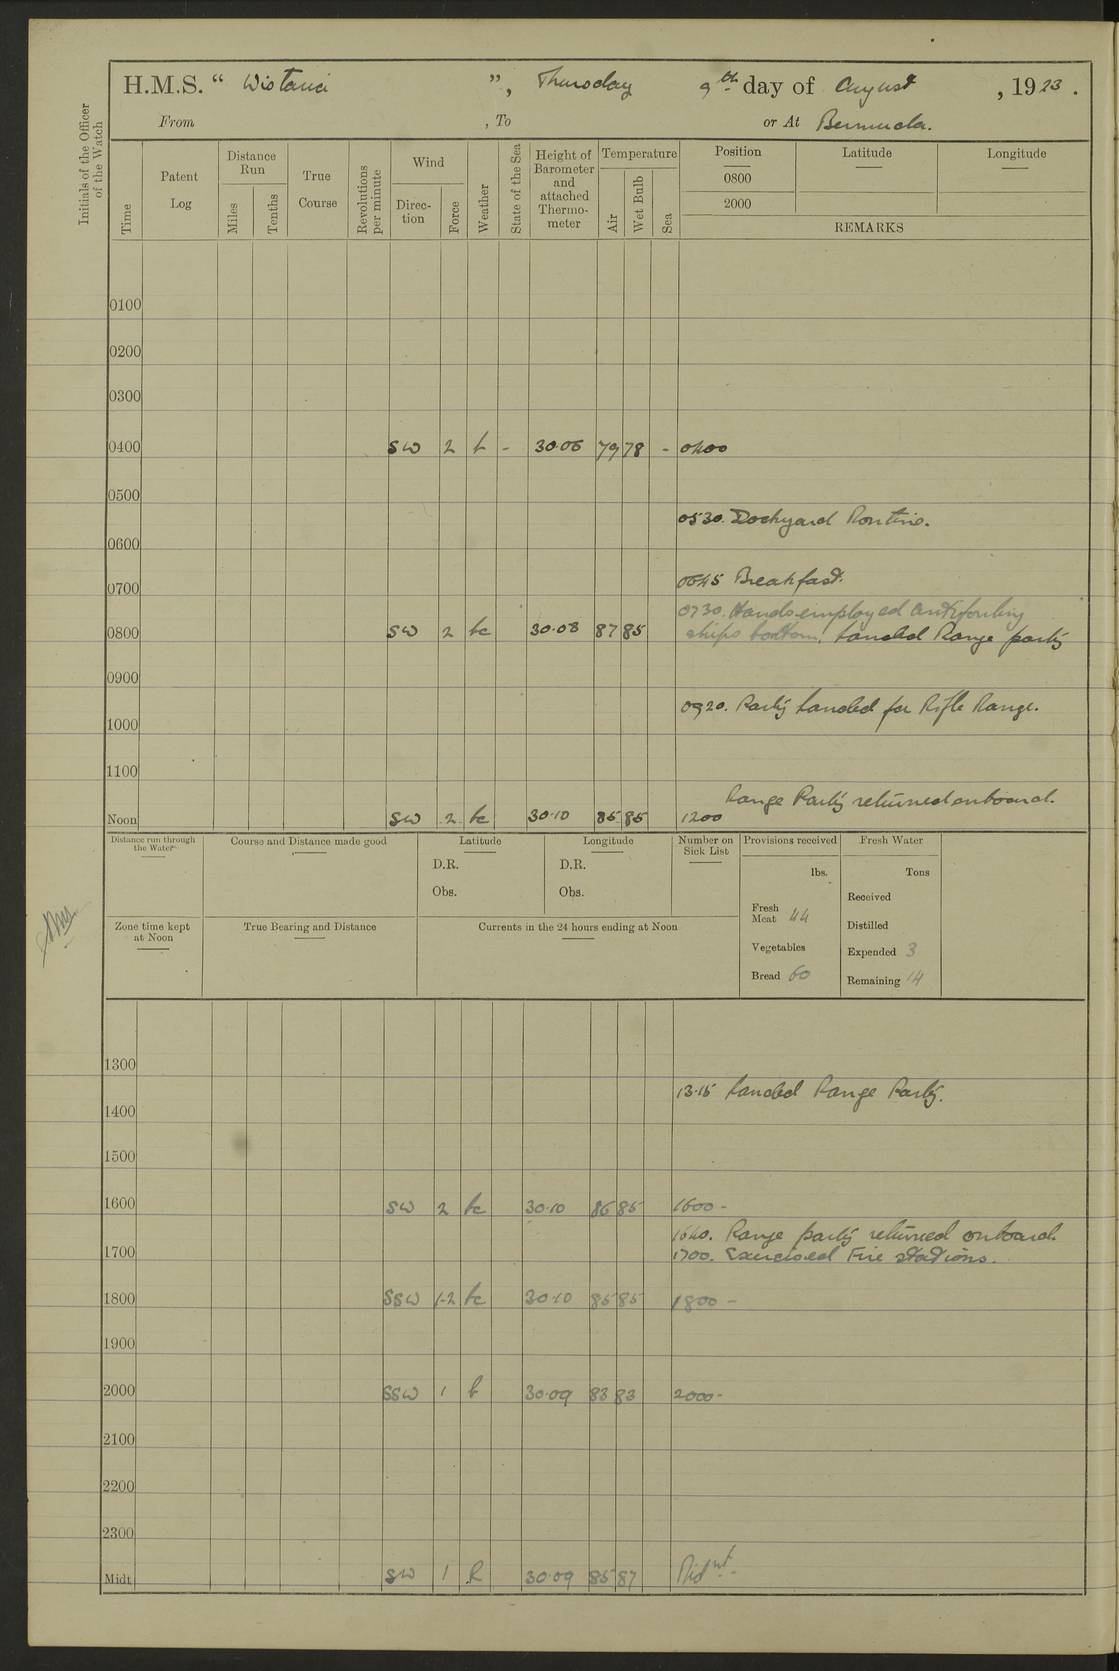 H.M.S. “ Wistaria ”, Thursday 9th day of August, 1923.
From , To or At Bermuda.
Initials of the Officer of the Watch
Time
Patent Log
Distance Run
Miles
Tenths
True Course
Revolutions per minute
Wind
Direc-tion
Force
Weather
State of the Sea
Height of Barometer and attached Thermo-meter
Temperature
Air
Wet Bulb
Sea
Position
0800
2000
Latitude
Longitude
REMARKS
0100
0200
0300
0400 SW 2 b - 30.06 79 78 - 0400
0500
0530. Dockyard Routine.
0600
0645 Breakfast.
0700
0730. Hands employed antifouling
0800 SW 2 bc 30.08 87 85 ships bottom, Landed Range party
0900
0920. Party Landed for Rifle Range.
1000
1100
Range Party returned onboard.
Noon SW 2 bc 30.10 86 85 1200
Distance run through the Water
Course and Distance made good
Latitude
D.R.
Obs.
Longitude
D.R.
Obs.
Number on Sick List
Provisions received
lbs.
Fresh Meat 44
Vegetables
Bread 60
Fresh Water
Tons
Received
Distilled
Expended 3
Remaining 14
Zone time kept at Noon
True Bearing and Distance
Currents in the 24 hours ending at Noon
1300
13.15 Landed Range Party.
1400
1500
1600 SW 2 bc 30.10 86 85 1600 -
1640. Range party returned onboard.
1700 1700. Exercised Fire stations.
1800 SSW 1-2 bc 30.10 85 85 1800 -
1900
2000 SSW 1 b 30.09 83 83 2000 -
2100
2200
2300
Midt. SW 1 R 30.09 85 87 Midnt -